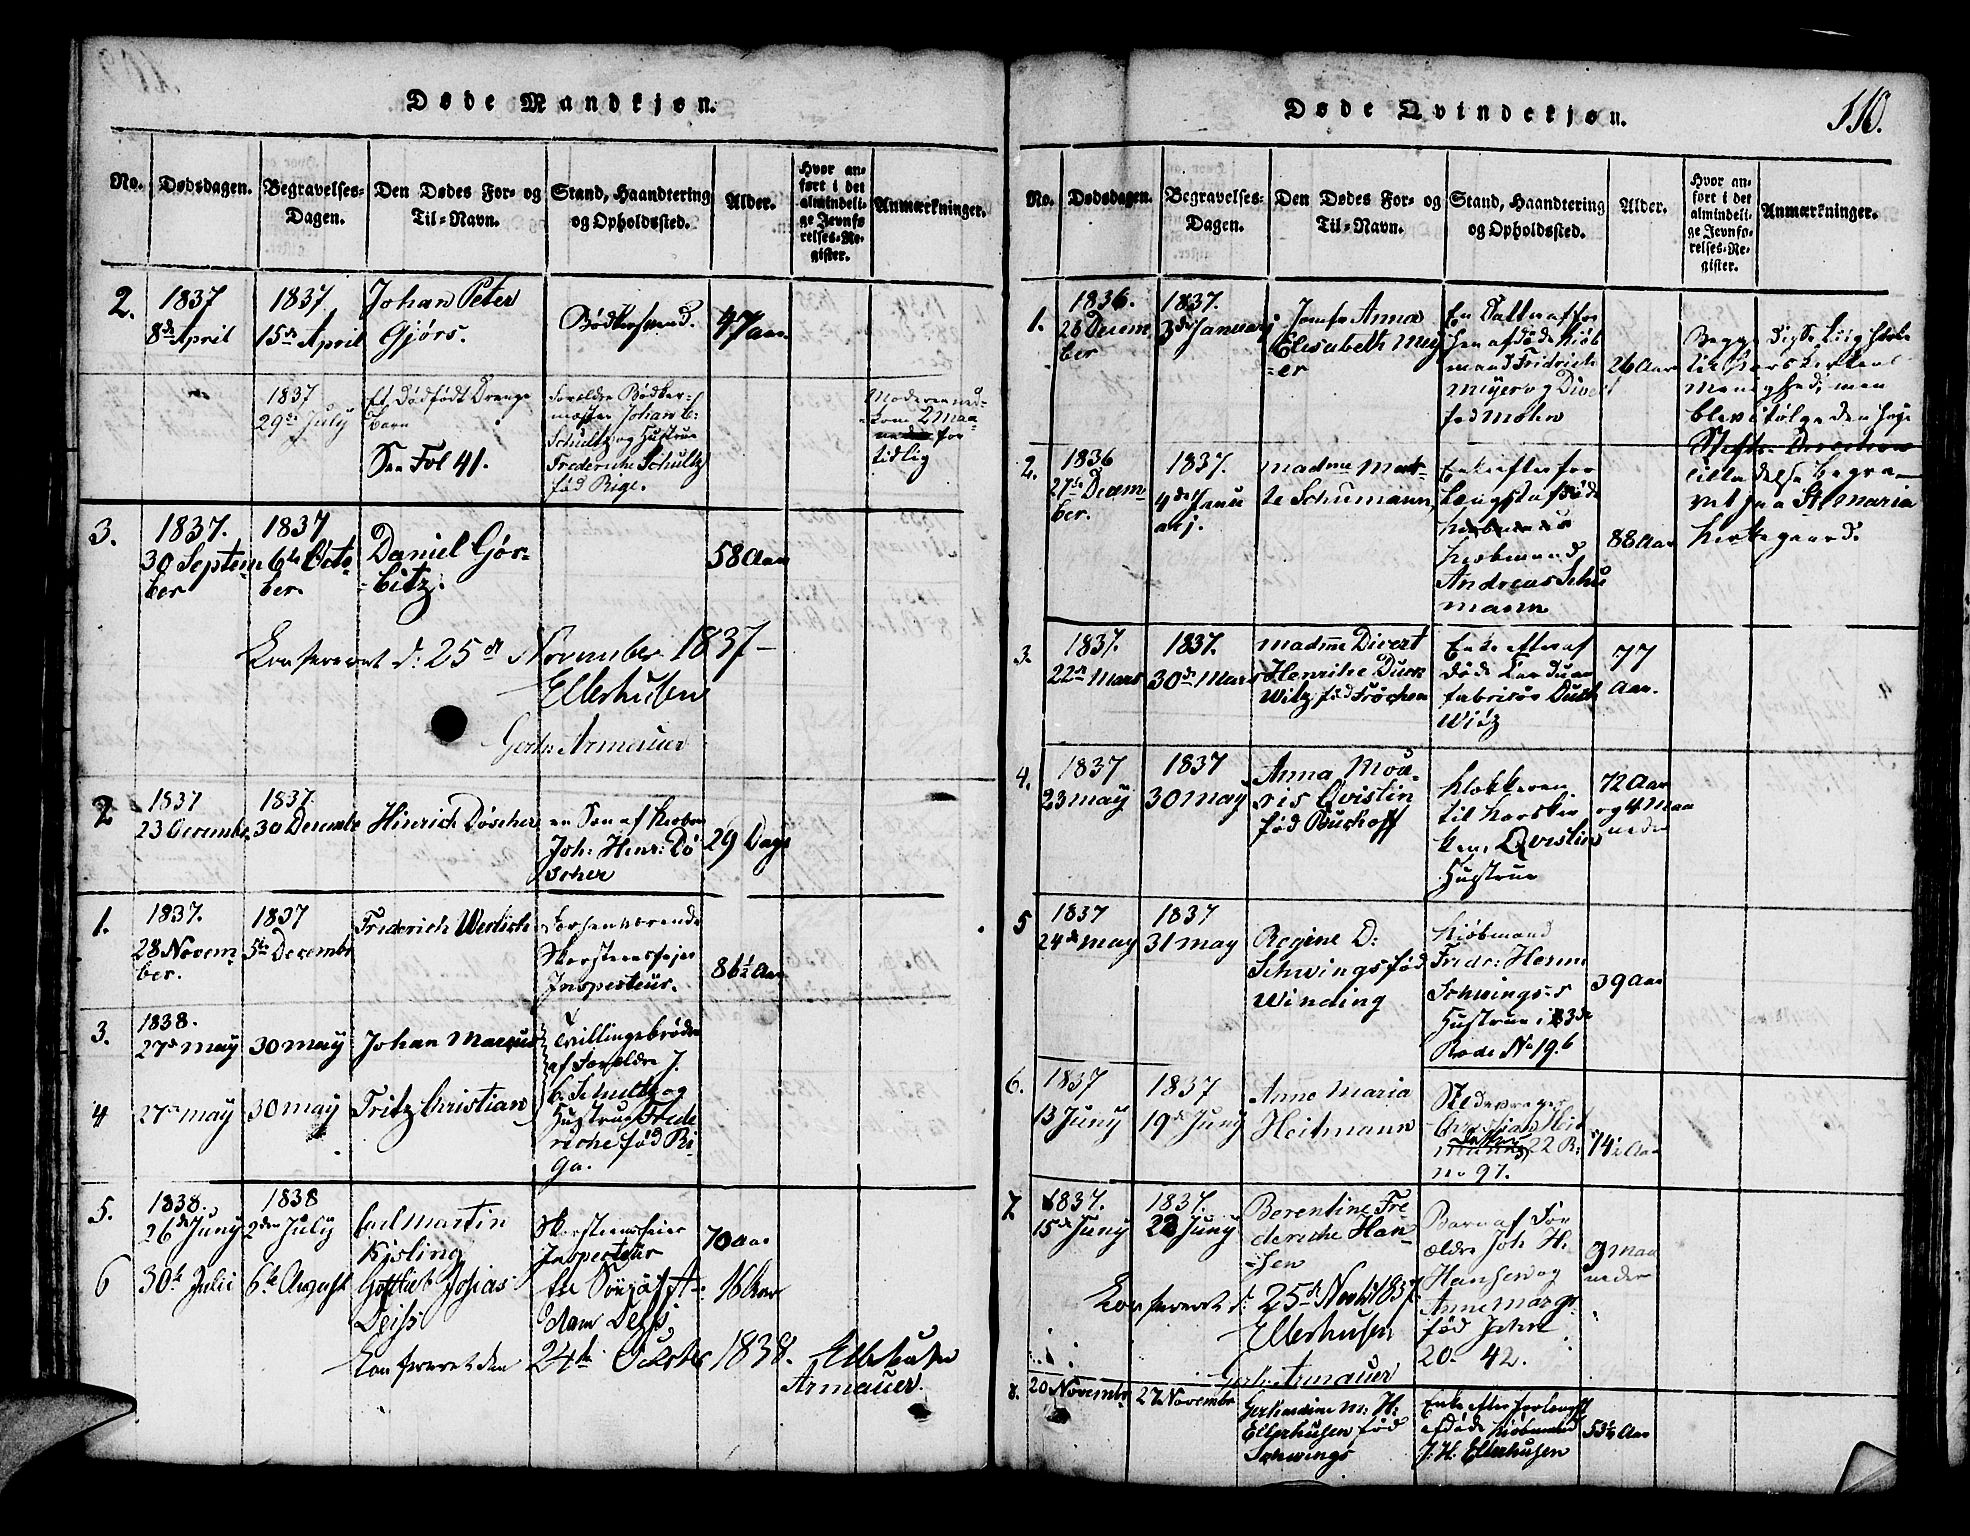 Døde Mandkjøn.
No.
Dødsdagen.
Begravelses-
Dagen.
Den Dødes For- og
Til-Navn.
Stand, Haandtering
og Opholdssted.
Alder.
Hvor an-
ført i det
almindeli-
ge Jevnfø-
relses-Re-
gister.
Anmærkninger.
2.
1837
8de April
1837.
15de April
Johan Peter
Gjørs.
Bødkersvend.
47 aar
1837
29de July
Et dødfødt Drenge
Barn
See Fol 41.
Forældre Bødker-
mester Johan C.
Schultz og Hustrue
Frederiche Schultz
fød Rige.
Moderen ned-
kom 2 Maa-
neder for
tidlig
3.
1837.
30 Septem
ber
1837
6te Octo-
ber.
Daniel Gør-
bitz.
58 Aar
Confereret d: 25de November 1837
Ellerhusen
Gerh: Armauer
2
1837
23 December
1837.
30 December
Hinrich Døscher
en Søn af
Joh: Henr: Dö
scher
29 Dage
1.
1837.
28 Novem-
ber.
1837
5te December
Friderich Werlich
Forhenværende
Skorsteensfejer
Inspecteur.
86½ Aar
3.
1838.
27de May
30 May
Johan Marcus
Tvillingebrødre
af Forældre J.
C. Schultz og
Hustrue Frede
riche fød Ri-
ga.
4
27de May
30 May
Fritz Christian
5.
1838.
26de Juny
1838
2den July
Carl Martin
Kisling
Skorsteensfeier
Inspecteur
70 aar
6
30te Julii
6te August
Gottlieb Josias
Deiss
Adam Deiss
16 Aar
Confereret den 24de October 1838. Ellerhusen
Armauer.
Døde Qvindekjøn.
110.
No.
Dødsdagen.
Begravelses-
Dagen.
Den Dødes For- og
Til-Navn.
Stand, Haandtering
og Opholdssted.
Alder.
Hvor an-
ført i det
almindeli-
ge Jevnfø-
relses-Re-
gister.
Anmærkninger.
1.
1836.
28 Decem
ber
1837.
3de January
Jomfr Anna
Elisabeth Mey
-er
En Datter af for
hen afdøde Kiøb
mand Fridrich
Meyer og
fød Mohn
26 Aar
Begge disse Liig hørte
til Korskirkens
Menighed, men
bleve ifølge den høje
Stifts-Direction
tilladelse begra-
vet paa St Maria
Kirkegaard.
2.
1836
27de Decem-
ber.
1837.
4de Janu
arj.
Madme Mar-
te Schumann,
Enke efter for
længst afdøde
Kiøbmand
Andreas Schu
mann
88 Aar
3.
1837.
22de Mars
1837.
30de Mars
Madme Divert
Henriche Duck
witz fød Frøchen
Enke efter af
døde
fabrikør Duck
witz
77
Aar.
4.
1837
23 May
1837
30 May
Anna Mou-
ris Qvistin
fød Buchoff
Klokkeren
til Korskir
ken, Qvistins
Hustrue
72 Aar
og 4 Maa
neder
5
1837
24de May
1837
31 May
Regine D:
Schwings fød
Winding
Kiøbmand
Fride: Herm
Schwings's
Hustrue i 3de
Rode No 19.6
39 Aar
6.
1837
13 Juny
1837
19de Juny
Anne Maria
Heitmann
Christian Heit
manns
22 R:
no 97.
74½ Aar
7.
1837.
15de Juny
1837.
22 Juny
Berentine Fre
deriche Han-
sen
Barn af For
ældre Joh H.
Hansen og
Anne Margr.
fød Jahn
20. 42.
9 Maa
neder
Confereret d: 25de Novbr 1837
Ellerhusen
Gerh: Armauer
8.
20 Novembr.
27 Novembr
Gerhardine M: H:
Ellerhusen fød
Schwings
Enke efter forlængst
afdøde Kiøbmand
J: H: Ellerhusen
53½ Aar